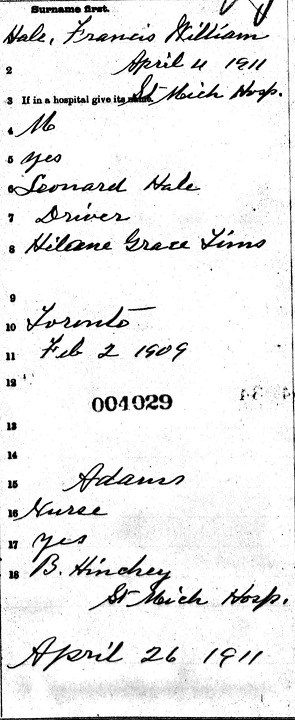 Surname first.
Hale, Francis William
2 April 4 1911
3 If in a hospital give its name. St Mich Hosp.
4 M
5 yes
6 Leonard Hale
7 Driver
8 Grace Sims
9
10 Toronto
11 Feb 2 1909
12
004029
13
14
15 Adams
16 Nurse
17 yes
18 B. Hinchey
St Mich Hosp.
April 26 1911